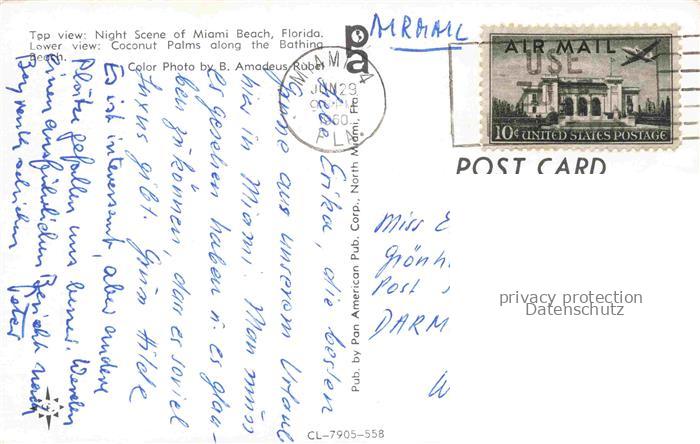 Top view: Night Scene of Miami Beach, Florida.
Lower view: Coconut Palms along the Bathing
Beach.
Color Photo by B. Amadeus Rubel
Liebe Erika, die besten
Grüsse aus unserem Urlaub
hier in Miami. Man muss
es gesehen haben u. es glau-
ben zu können, dass es soviel
Luxus gibt. Gruss Hilde
Es ist interessant, aber andere
Plätze gefallen uns besser. Werden
einen ausführlichen Bericht nach
Bayreuth schicken
Peter
Pub. by Pan American Pub. Corp., North Miami, Fla.
CL-7905-558
pa
AIRMAIL
MIAMI
JUN 29
1960
FLA.
AIR MAIL
USE
10¢ UNITED STATES POSTAGE
POST CARD
Miss E
Grönh
Post
DARM
W
privacy protection
Datenschutz